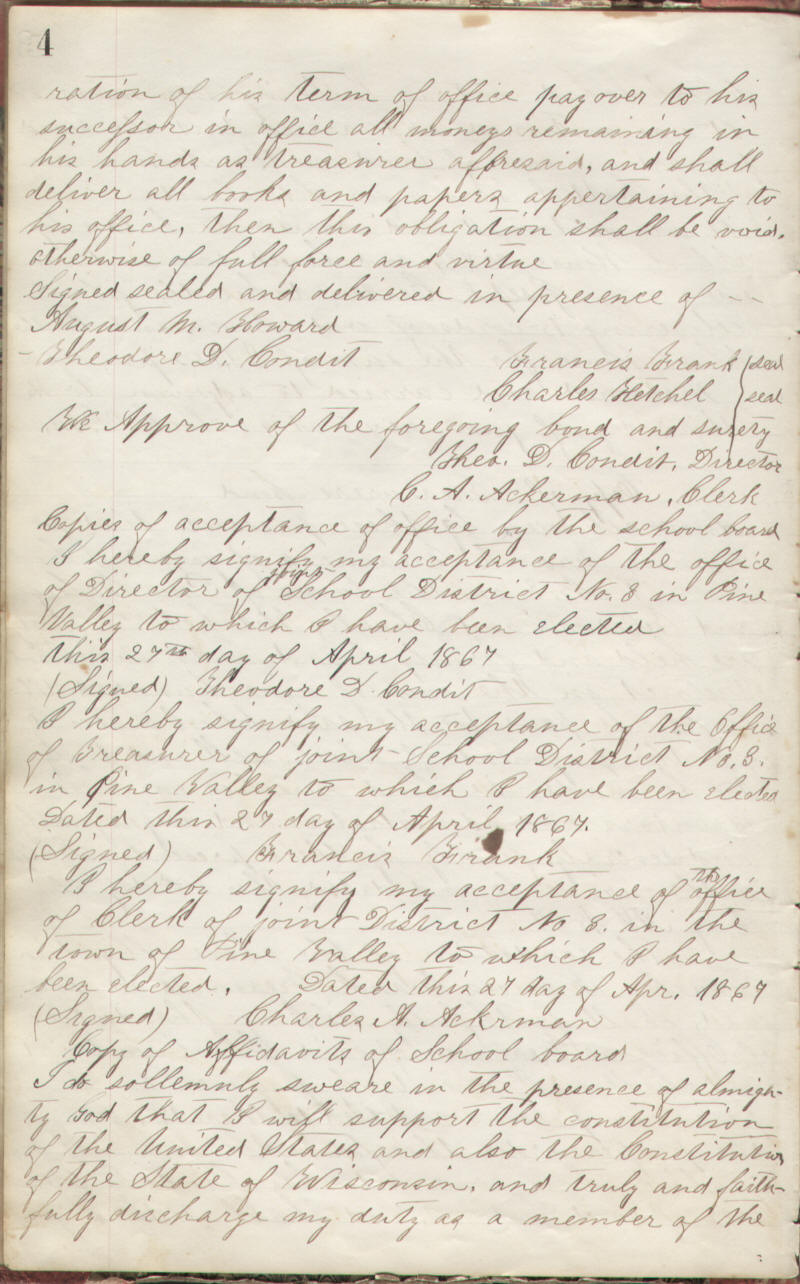 4
ration of his term of office pay over to his
successor in office all moneys remaining in
his hands as treasurer aforesaid, and shall
deliver all books and papers appertaining to
his office, then this obligation shall be void.
otherwise of full force and virtue
Signed sealed and delivered in presence of --
August M. Howard
Theodore D. Condit Francis Frank (seal
Charles Hetchel (seal
We Approve of the foregoing bond and surety
Theo. D. Condit, Director
C. A. Ackerman, Clerk
Copies of acceptance of office by the school board
I hereby signify my acceptance of the office
of Director of joint School District No. 8 in Pine
Valley to which I have been elected
this 27th day of April 1867
(Signed) Theodore D. Condit
I hereby signify my acceptance of the Office
of Treasurer of joint School District No. 8.
in Pine Valley to which I have been elected
Dated this 27 day of April 1867.
(Signed) Francis Frank
I hereby signify my acceptance of the office
of Clerk of joint District No 8. in the
town of Pine Valley to which I have
been elected. Dated this 27 day of Apr. 1867
(Signed) Charles A. Ackrman
Copy of Affidavits of School board
I do sollemnly sweare in the presence of almigh-
ty God that I will support the constitution
of the United States and also the Constitution
of the State of Wisconsin. and truly and faith-
fully discharge my duty as a member of the